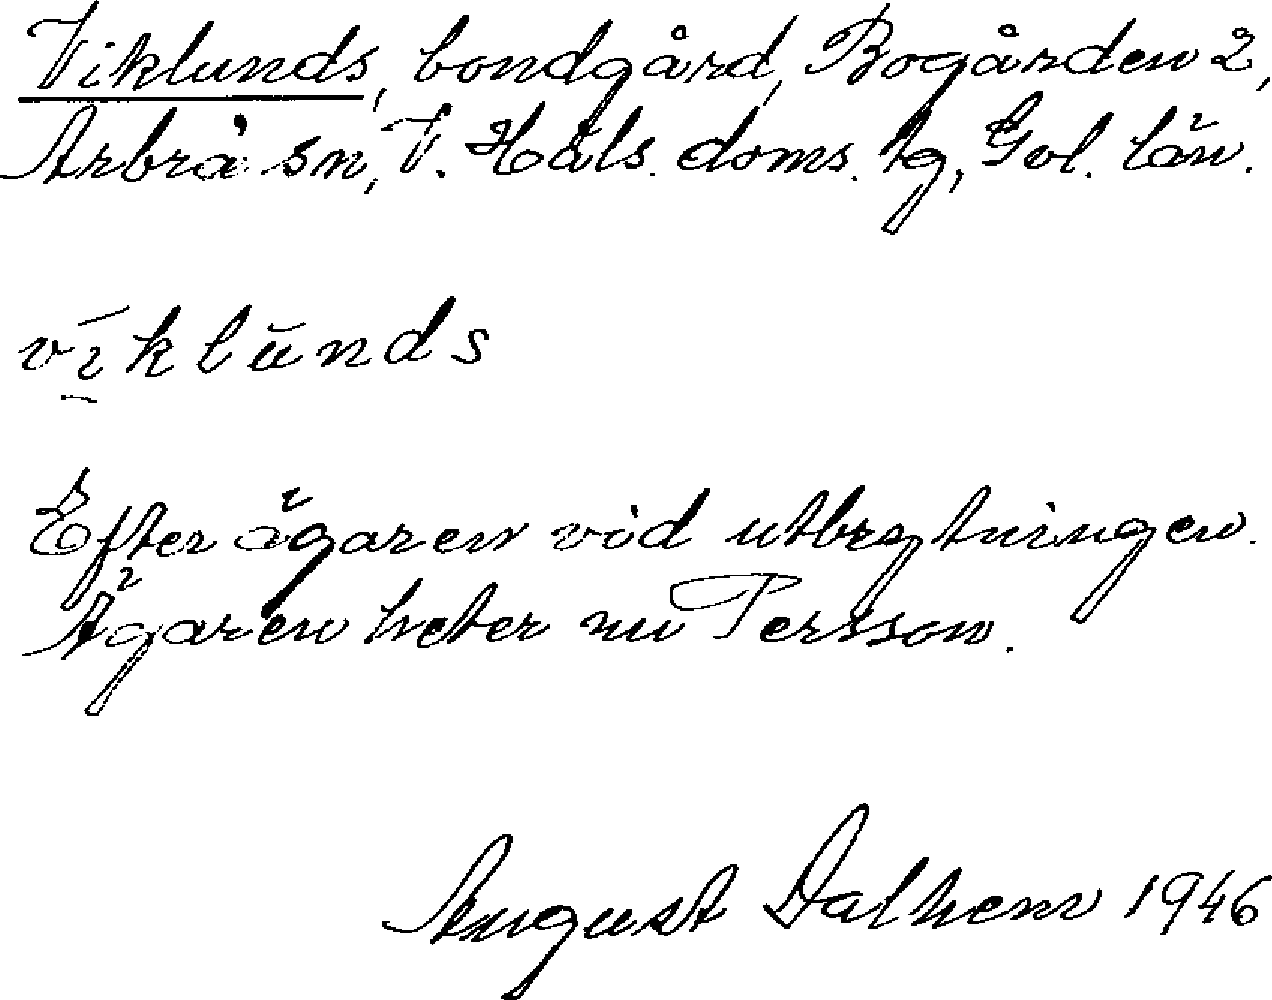 Viklunds, bondgård, Bogården 2,
Arbrå sn, V. Häls. doms. tg, Gvl. län.
vīklŭnds
Efter ägaren vid utbrytningen.
Ägaren heter nu Persson.
August Dalhem 1946